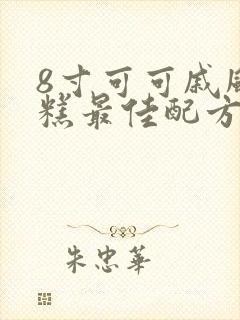 8寸可可戚风
糕最佳配方
朱忠華